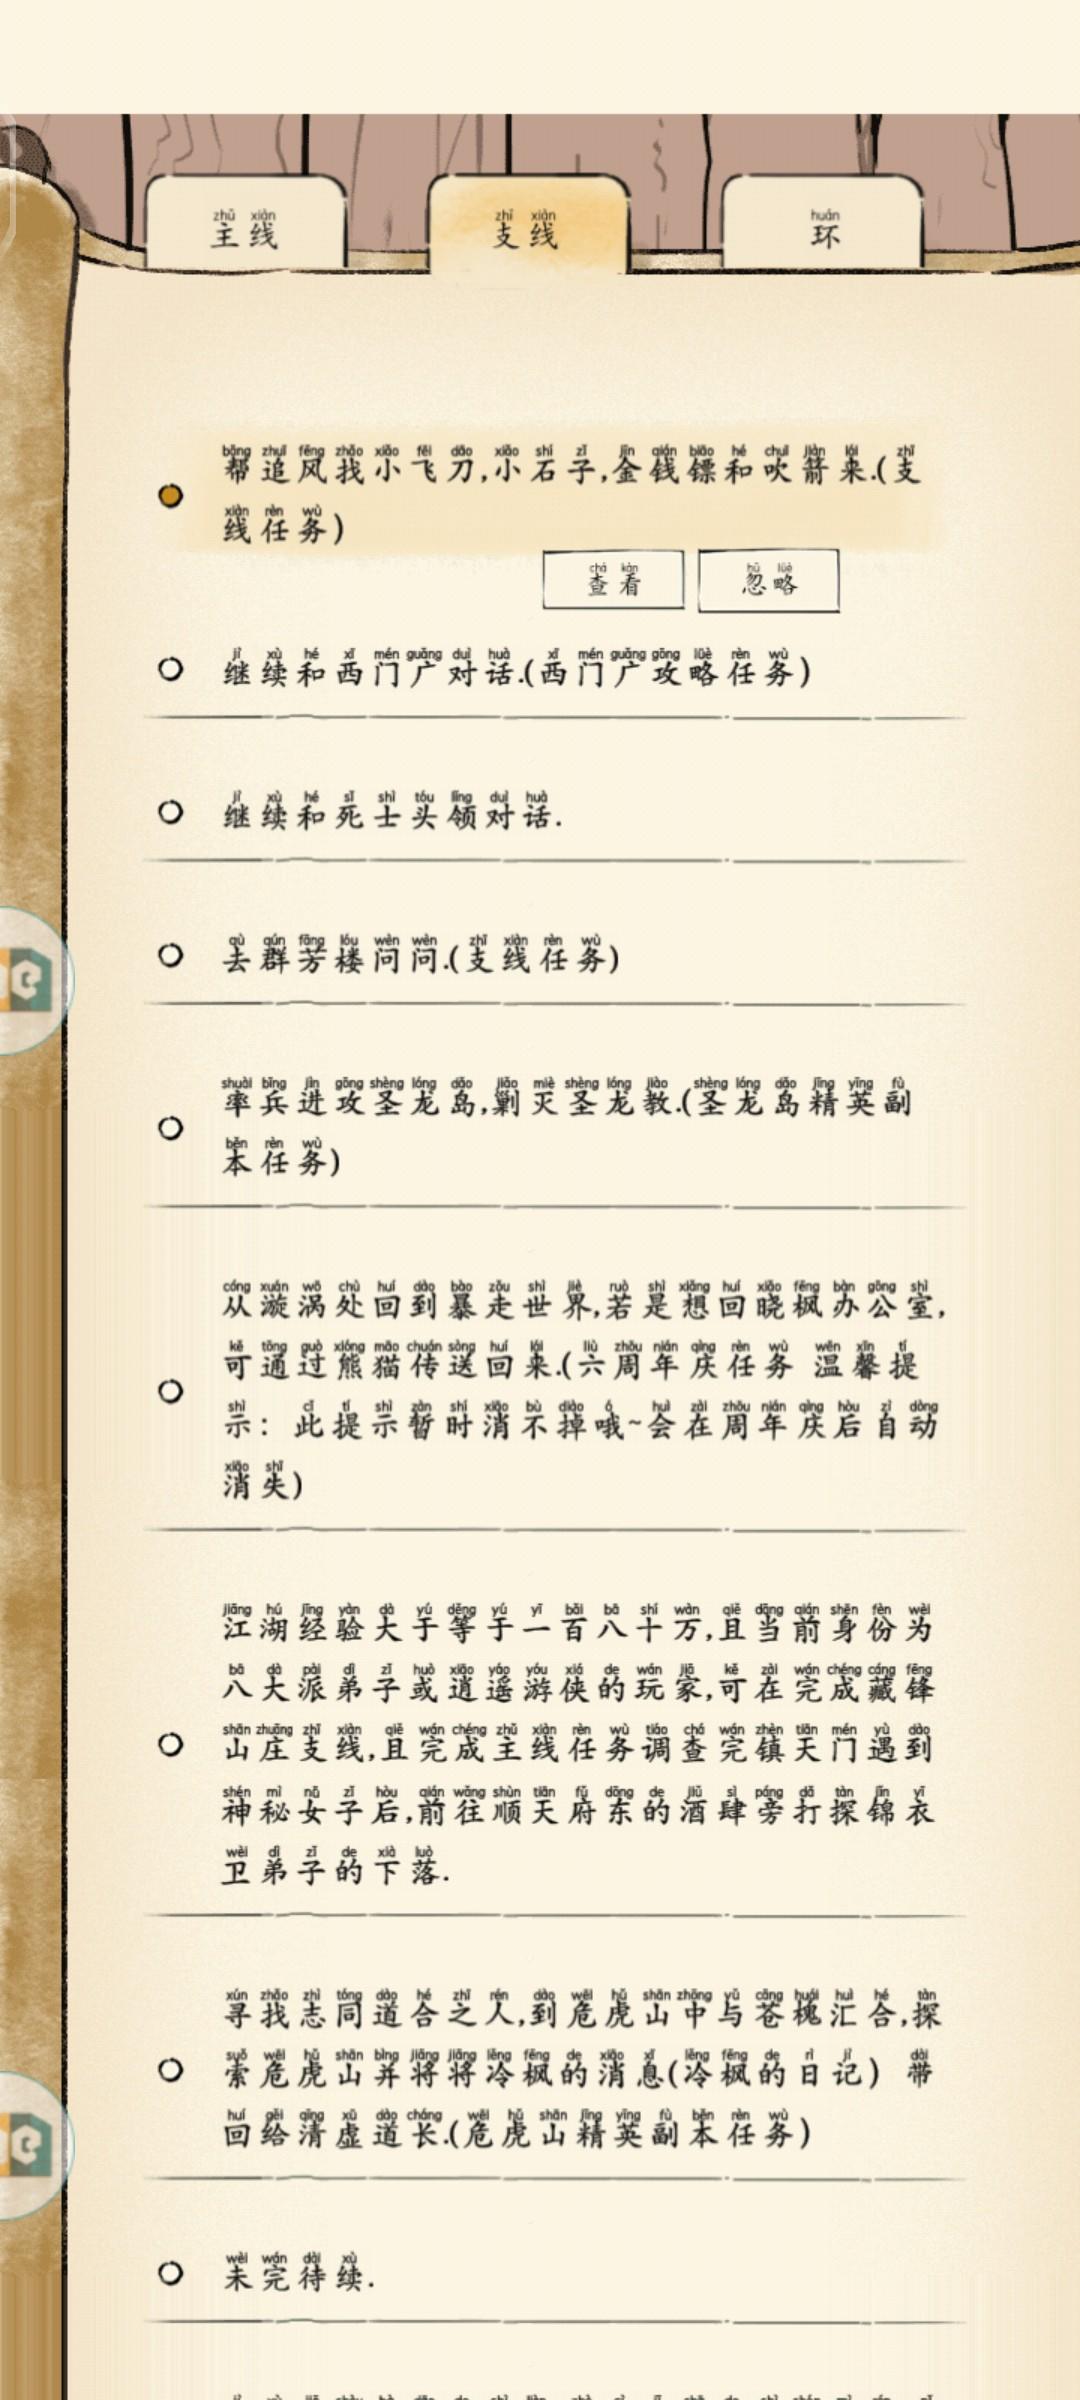 主线
支线
环
帮追风找小飞刀,小石子,金钱镖和吹箭来.(支
线任务)
查看
忽略
继续和西门广对话.(西门广攻略任务)
继续和死士头领对话.
去群芳楼问问.(支线任务)
率兵进攻圣龙岛,剿灭圣龙教.(圣龙岛精英副
本任务)
从漩涡处回到暴走世界,若是想回晓枫办公室,
可通过熊猫传送回来.(六周年庆任务 温馨提
示: 此提示暂时消不掉哦~会在周年庆后自动
消失)
江湖经验大于等于一百八十万,且当前身份为
八大派弟子或逍遥游侠的玩家,可在完成藏锋
山庄支线,且完成主线任务调查完镇天门遇到
神秘女子后,前往顺天府东的酒肆旁打探锦衣
卫弟子的下落.
寻找志同道合之人,到危虎山中与苍槐汇合,探
索危虎山并将将冷枫的消息(冷枫的日记) 带
回给清虚道长.(危虎山精英副本任务)
未完待续.